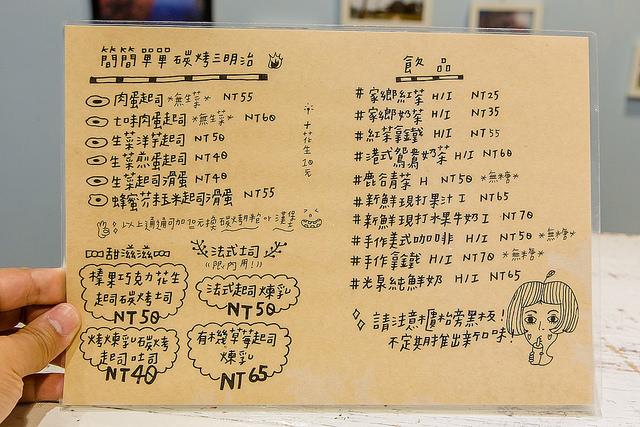 簡簡單單碳烤三明治
肉蛋起司 *無生菜* NT55
七味肉蛋起司 *無生菜* NT60
生菜洋芋起司 NT50
生菜煎蛋起司 NT40
生菜起司滑蛋 NT40
蜂蜜芥末玉米起司滑蛋 NT55
+花生10元
以上通通可加10元換
漢堡
甜滋滋
榛果巧克力花生
起司碳烤吐司
NT50
烤煉乳碳烤
起司吐司
NT40
法式吐司
(限內用!)
法式起司煉乳
NT50
有機草莓起司
煉乳
NT65
飲品
#家鄉紅茶 H/I NT25
#家鄉奶茶 H/I NT35
#紅茶拿鐵 H/I NT55
#港式鴛鴦奶茶 H/I NT60
#鹿谷清茶 H NT50 *無糖*
#新鮮現打果汁 I NT65
#新鮮現打水果牛奶 I NT70
#手作美式咖啡 H/I NT50 *無糖*
#手作拿鐵 H/I NT70 *無糖*
#光泉純鮮奶 H/I NT65
請注意櫃枱旁黑板!
不定期推出新口味!